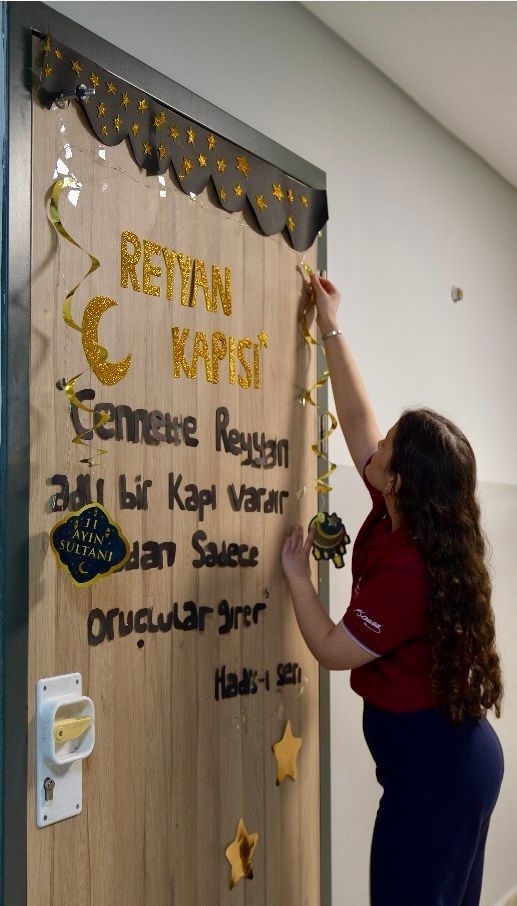 REYYAN
KAPISI
"Cennette Reyyan
adlı bir Kapı vardır
dan Sadece
Oruçlular girer"
Hadis-i şeri
11
AYIN
SULTANI